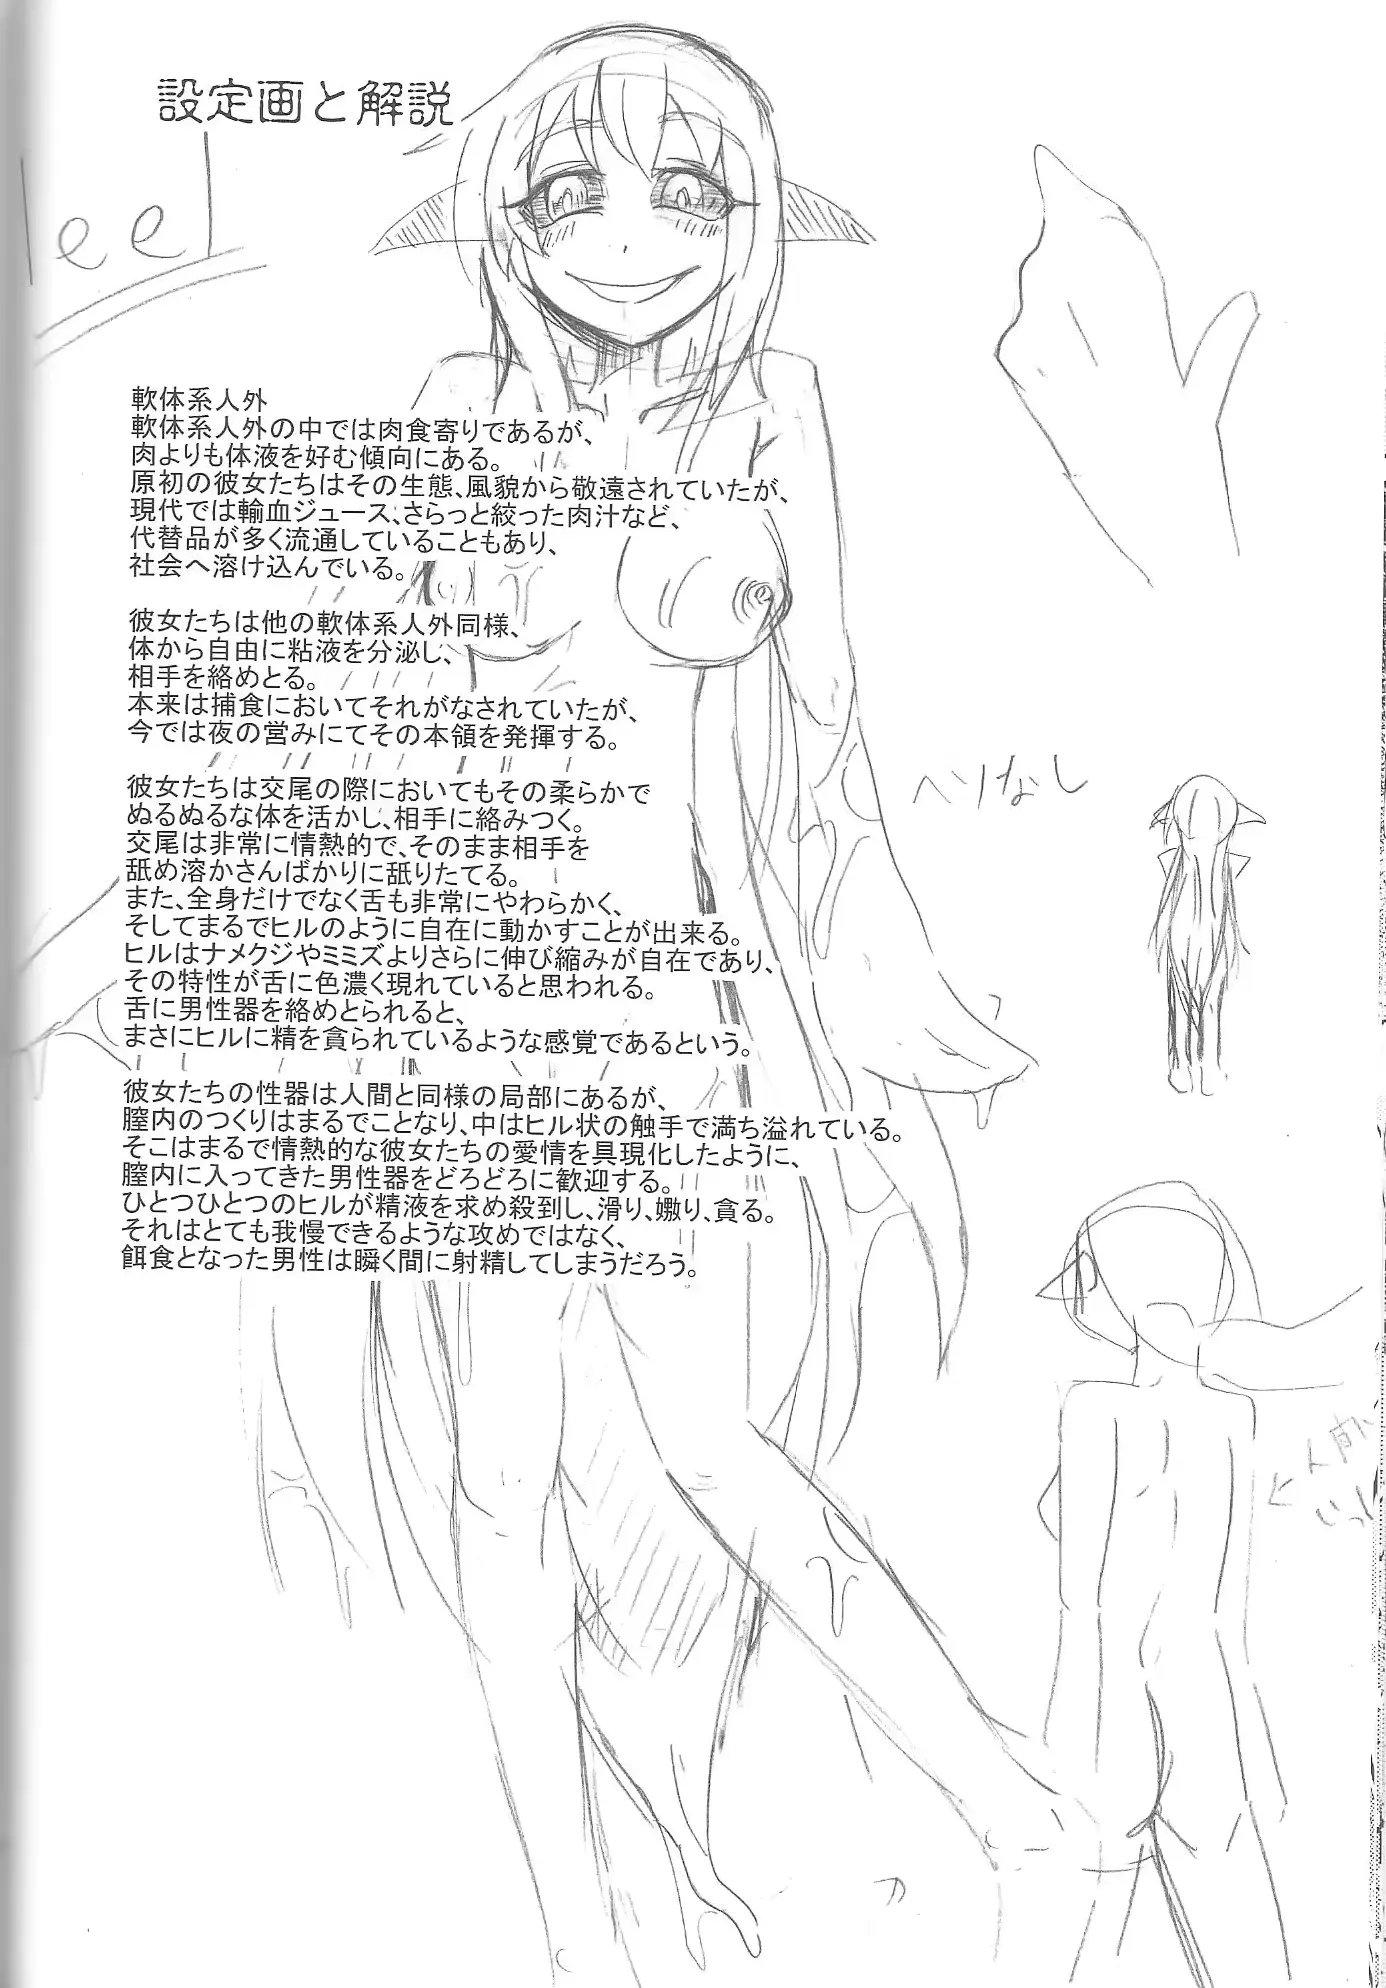 設定画と解説
leel
軟体系人外
軟体系人外の中では肉食寄りであるが、
肉よりも体液を好む傾向にある。
原初の彼女たちはその生態、風貌から敬遠されていたが、
現代では輸血ジュース、さらっと絞った肉汁など、
代替品が多く流通していることもあり、
社会へ溶け込んでいる。
彼女たちは他の軟体系人外同様、
体から自由に粘液を分泌し、
相手を絡めとる。
本来は捕食においてそれがなされていたが、
今では夜の営みにてその本領を発揮する。
彼女たちは交尾の際においてもその柔らかで
ぬるぬるな体を活かし、相手に絡みつく。
交尾は非常に情熱的で、そのまま相手を
舐め溶かさんばかりに舐りたてる。
また、全身だけでなく舌も非常にやわらかく、
そしてまるでヒルのように自在に動かすことが出来る。
ヒルはナメクジやミミズよりさらに伸び縮みが自在であり、
その特性が舌に色濃く現れていると思われる。
舌に男性器を絡めとられると、
まさにヒルに精を貪られているような感覚であるという。
彼女たちの性器は人間と同様の局部にあるが、
膣内のつくりはまるでことなり、中はヒル状の触手で満ち溢れている。
そこはまるで情熱的な彼女たちの愛情を具現化したように、
膣内に入ってきた男性器をどろどろに歓迎する。
ひとつひとつのヒルが精液を求め殺到し、滑り、嫐り、貪る。
それはとても我慢できるような攻めではなく、
餌食となった男性は瞬く間に射精してしまうだろう。
ヘソなし
人間と
いっ